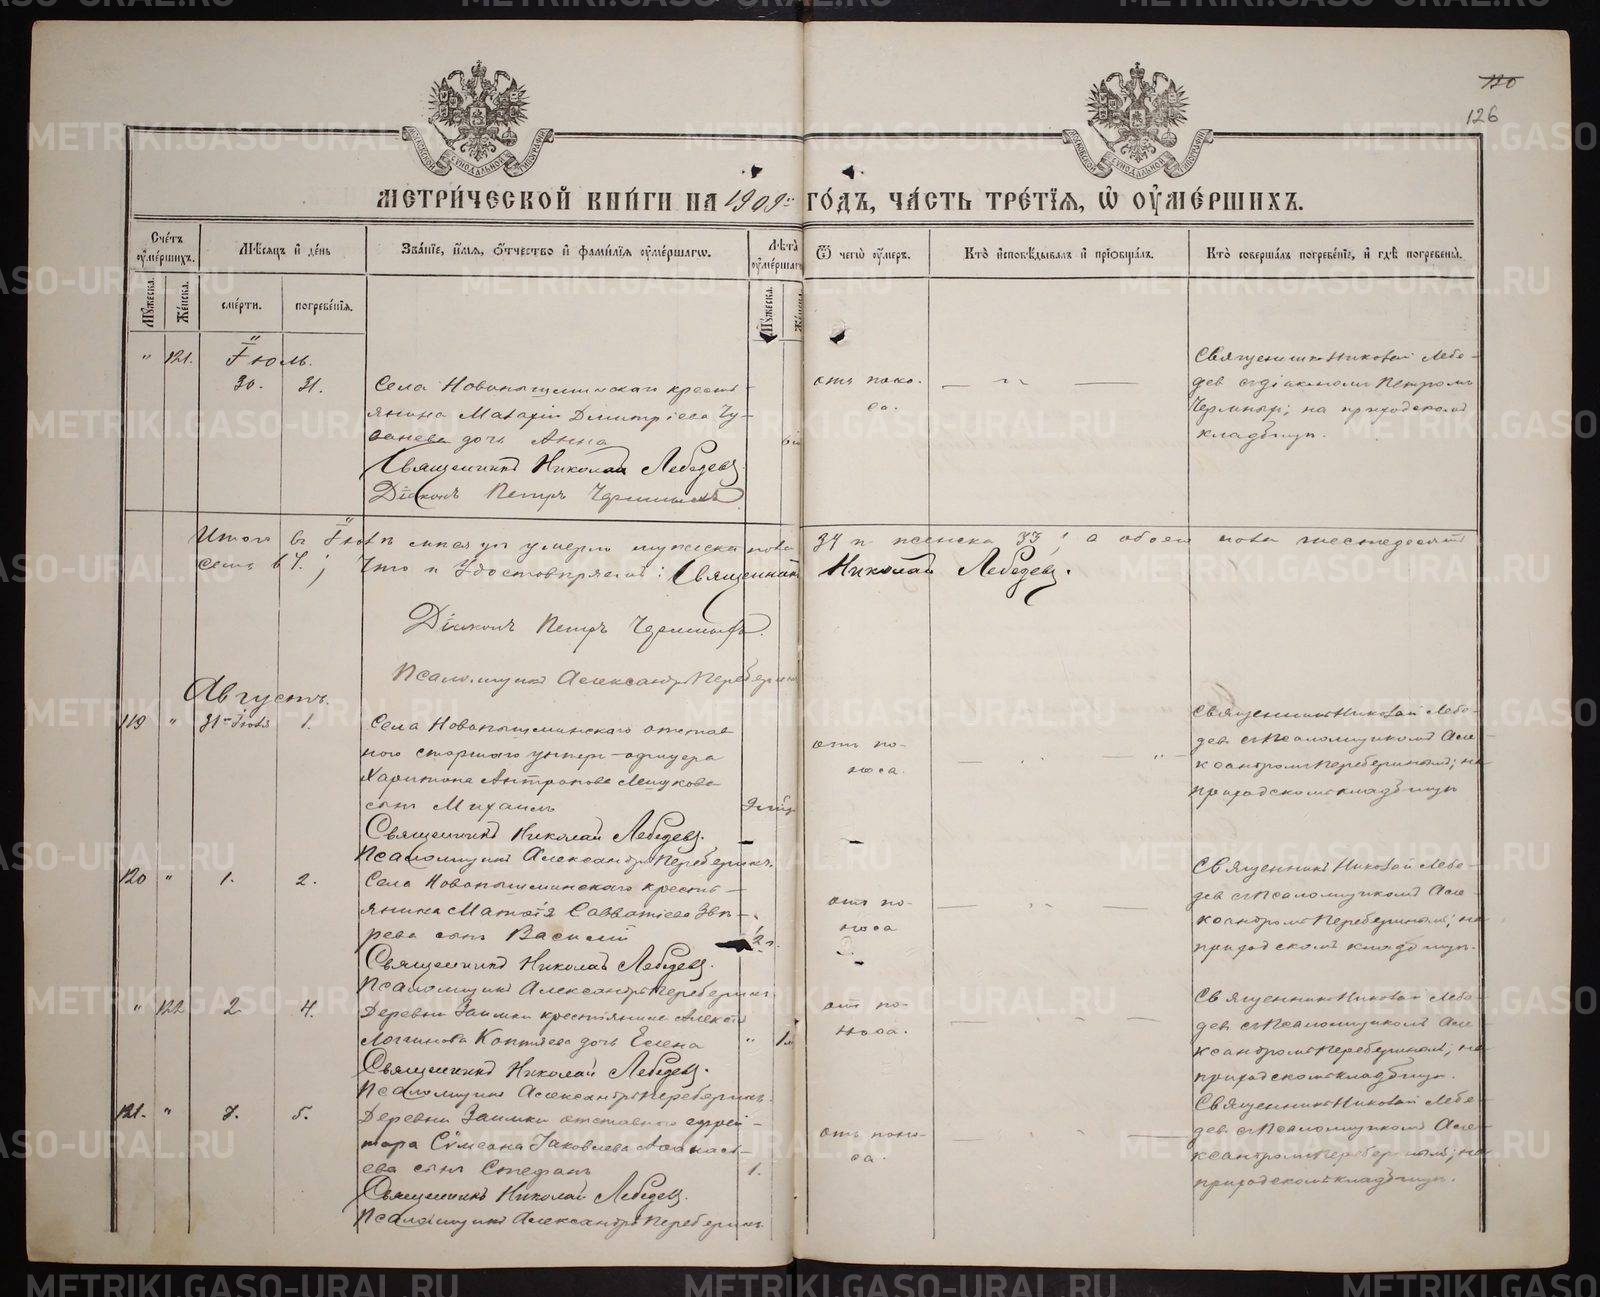 120
126
МЕТРИ́ЧЕСКОЙ КНИ́ГИ НА 1909 ГО́ДЪ, ЧА́СТЬ ТРЕ́ТІЯ, Ѡ ОУ҆МЕ́РШИХЪ.
Сче́тъ оу҆ме́ршихъ.
Мѣ́сяцъ и҆ де́нь
Зва́нїе, и҆́мя, ѻ҆́тчество и҆ фами́лїя оу҆ме́ршагѡ.
Лѣ́та оу҆ме́ршаг
Ѿ чегѡ̀ оу҆́меръ.
Кто̀ и҆сповѣ́дывалъ и҆ прїѡбща́лъ.
Кто̀ соверша́лъ погребе́нїе, и҆ гдѣ̀ погребены̀.
Мꙋ́жеска.
Же́нска.
сме́рти.
погребе́нїя.
Мꙋ́жеска.
Же́нска.
" 121. Іюль.
30. 31.
Села Новопышминскаго кресть-
янина Макарія Дмитріева Чу-
дочь Анна
Священникъ Николай Лебедевъ.
Діаконъ Петръ
отъ поно-
са.
Священникъ Николай Лебе-
дев съ діакономъ Петромъ
на приходскомъ
кладбищѣ.
Итого въ Іюлѣ мѣсяцѣ умерло мужска пола 34 и женска 33, а обоего пола шестьдесятъ
семь 67; Что и удостовѣряемъ: Священникъ Николай Лебедевъ.
Діаконъ Петръ
Псаломщикъ Александръ Переберинъ
Августъ.
119 " 31-Іюля 1.
Села Новопышминскаго отстав
ного старшаго унтеръ-офицера
Харитона Антропова
сынъ Михаилъ
Священникъ Николай Лебедевъ.
Псаломщикъ Александръ Переберинъ.
отъ по-
носа.
Священникъ Николай Лебе-
дев съ Псаломщикомъ Але-
ксандромъ Переберинымъ; на
приходскомъ кладбищѣ
120 " 1. 2.
Села Новопышминскаго кресть-
янина Савватіева Звѣ-
рева сынъ Василій
2 г.
Священникъ Николай Лебедевъ.
Псаломщикъ Александръ Переберинъ.
отъ по-
носа
Священникъ Николай Лебе-
дев съ Псаломщикомъ Але-
ксандромъ Переберинымъ; на
приходскомъ кладбищѣ.
" 122 2 4.
Деревни Заимки крестьянина Алексѣя
Логинова Коптяева дочь Елена
" 1
Священникъ Николай Лебедевъ.
Псаломщикъ Александръ Переберинъ.
отъ по-
носа.
Священникъ Николай Лебе-
дев съ Псаломщикомъ Але-
ксандромъ Переберинымъ; на
приходскомъ кладбищѣ.
121. " 3. 5.
Деревни Заимки отставного ефрей-
тора Сѵмеона Іаковлева Аѳанась-
ева сынъ Стефанъ
1.
Священникъ Николай Лебедевъ.
Псаломщикъ Александръ Переберинъ
отъ поно-
са.
Священникъ Николай Лебе-
дев съ Псаломщикомъ Але-
ксандромъ Переберинымъ; на
приходскомъ кладбищѣ.
METRIKI.GASO-URAL.RU